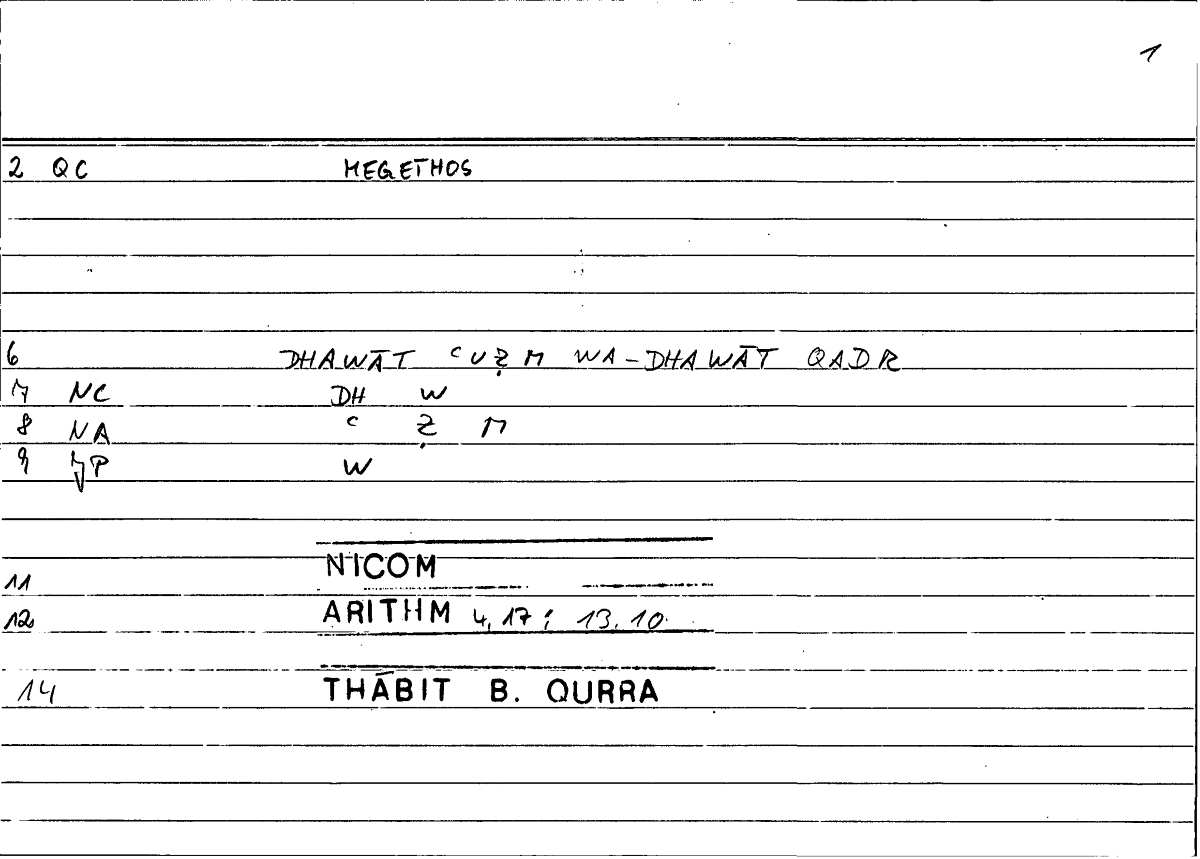 1
2 QC MEGETHOS
6 DHAWĀT ᶜUẒM WA-DHAWĀT QADR
7 NC DH W
8 NA ᶜ Ẓ M
9 W
NICOM
11
12 ARITHM 4,17; 13.10
14 THĀBIT B. QURRA